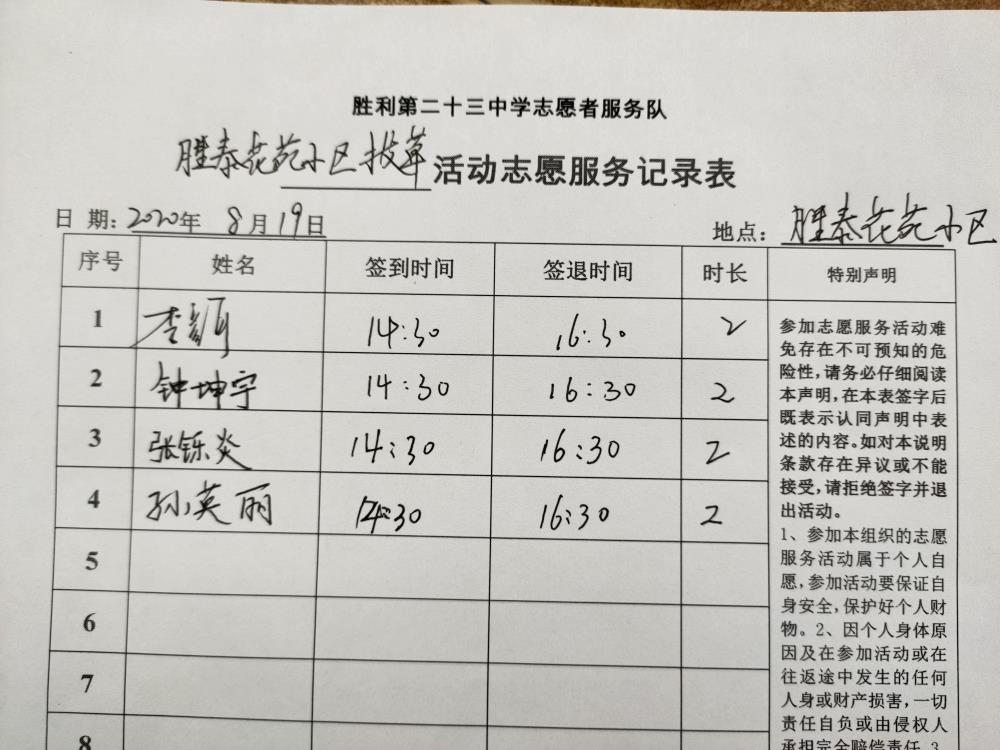 胜利第二十三中学志愿者服务队
胜泰花苑小区拔草活动志愿服务记录表
日 期：2020年 8月19日
地点：胜泰花苑小区
序号 姓名 签到时间 签退时间 时长 特别声明
1 李 14:30 16:30 2
2 钟坤宇 14:30 16:30 2
3 张铄炎 14:30 16:30 2
4 孙英丽 14:30 16:30 2
5
6
7
8
参加志愿服务活动难
免存在不可预知的危
险性,请务必仔细阅读
本声明,在本表签字后
既表示认同声明中表
述的内容。如对本说明
条款存在异议或不能
接受,请拒绝签字并退
出活动。
1、参加本组织的志愿
服务活动属于个人自
愿,参加活动要保证自
身安全,保护好个人财
物。2、因个人身体原
因及在参加活动或在
往返途中发生的任何
人身或财产损害,一切
责任自负或由侵权人
承担完全赔偿责任。3